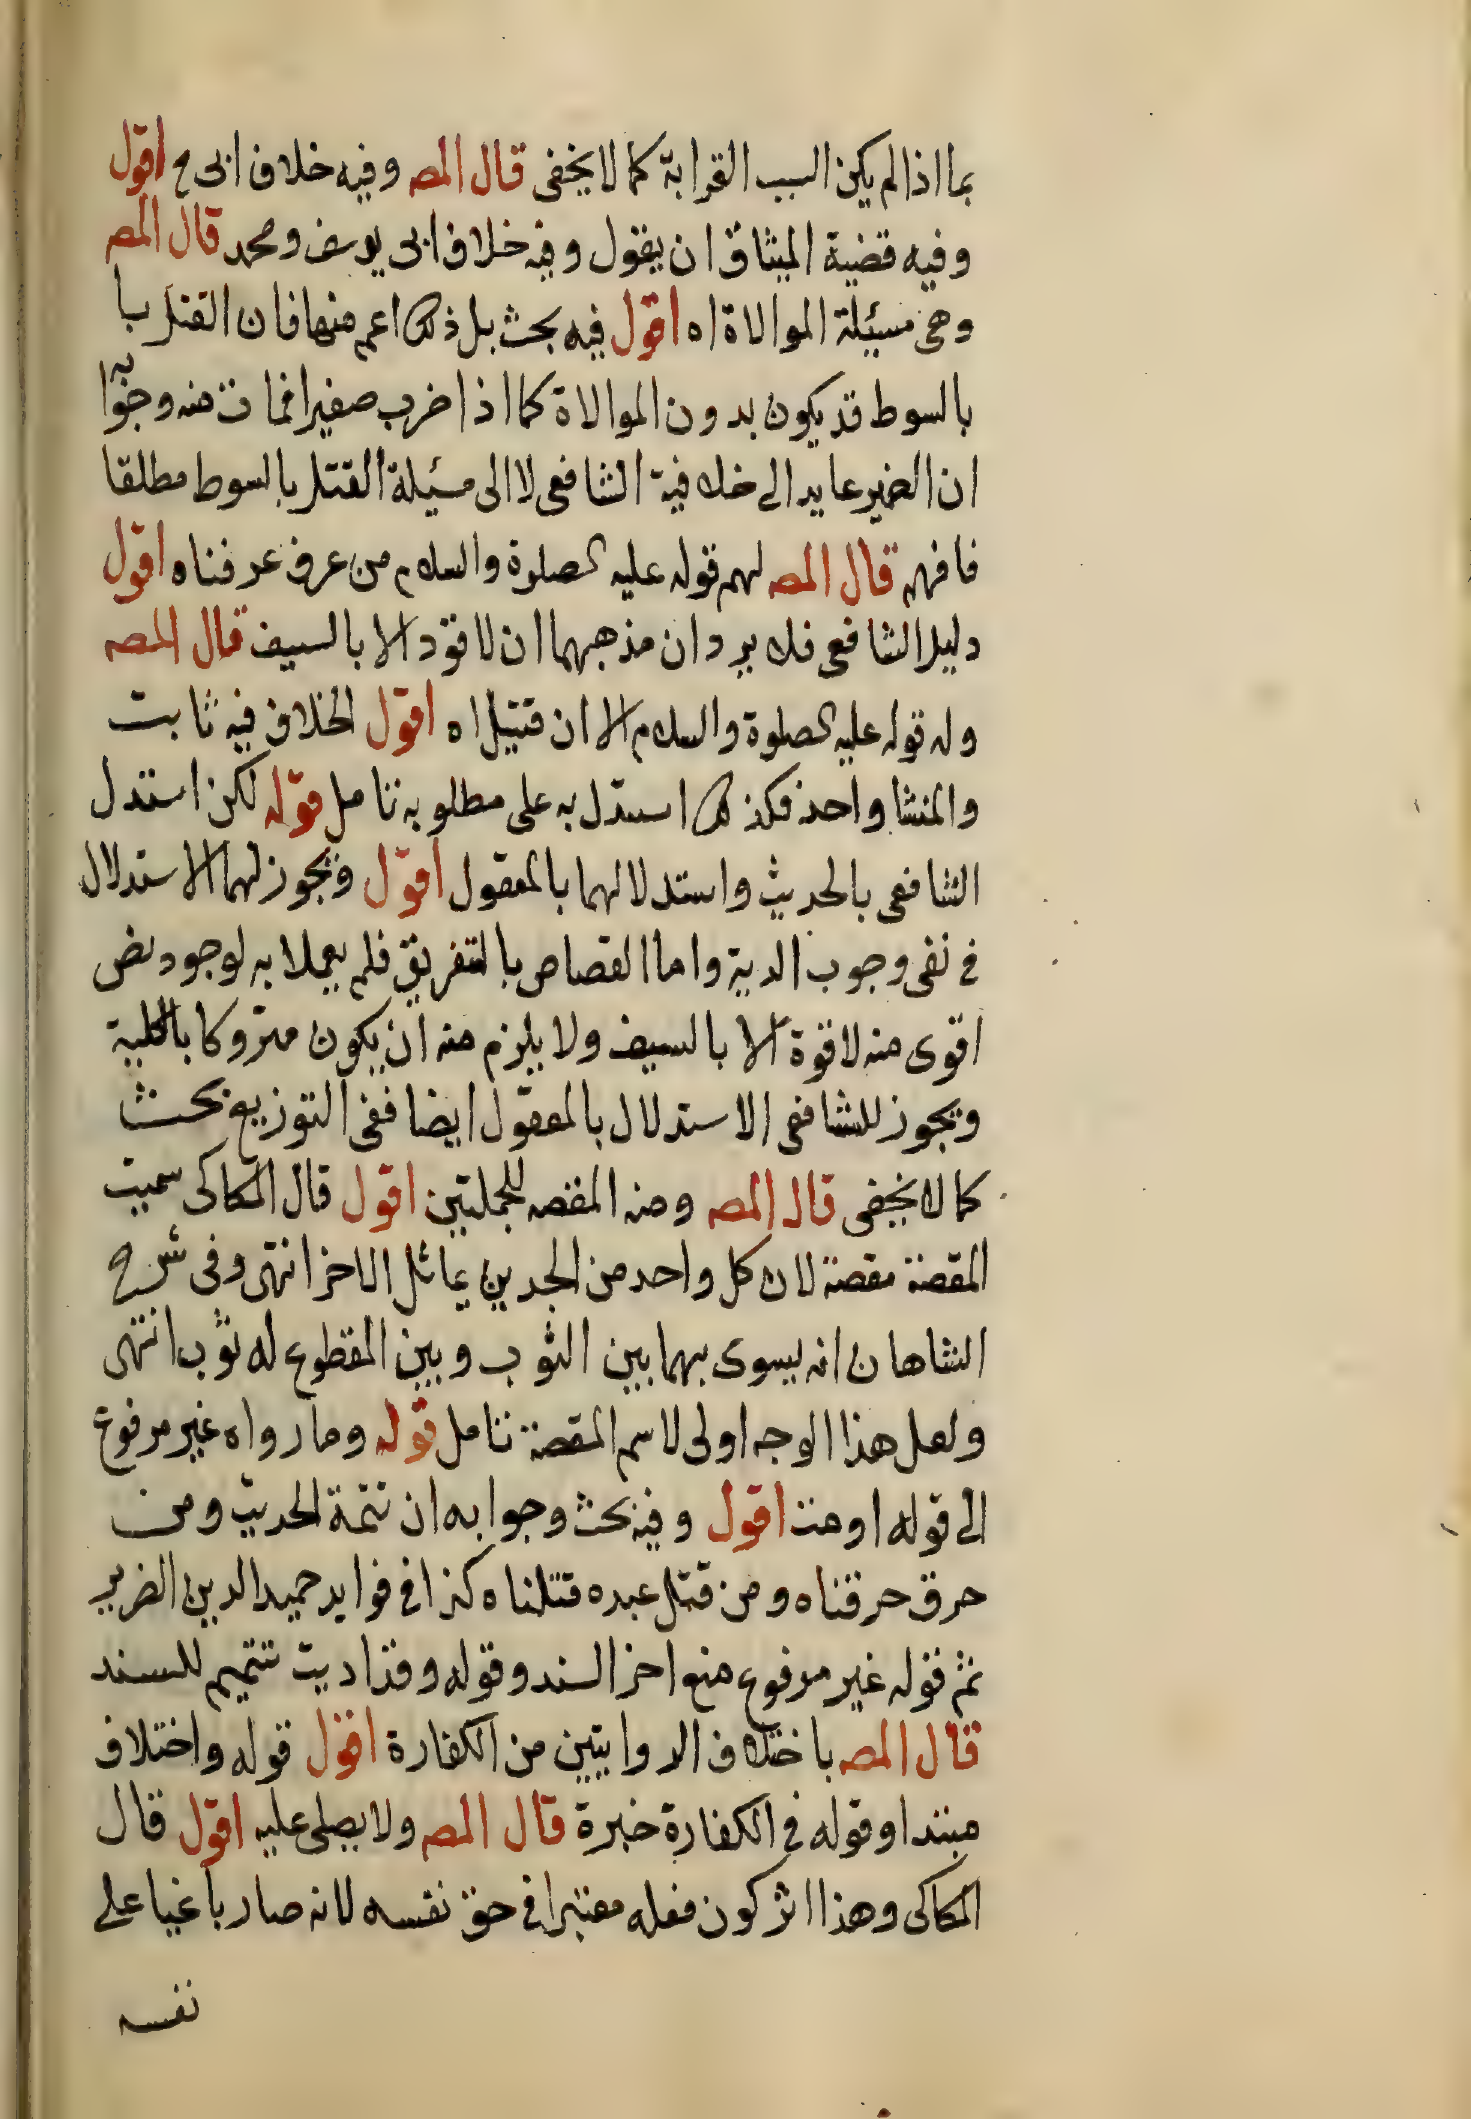 بما اذا لم يكن السبب القرابة كما لا يخفى قال المصه وفيه خلاف ابى ح اقول
وفيه قضية الميثاق ان يقول وفيه خلاف ابى يوسف ومحمد قال المصه
وهى مسئلة الموالاة اه اقول فيه بحث بل ذلك اعم منها فان القتل با
بالسوط قد يكون بدون الموالاة كما اذا ضرب صغيرا فمات منه وجوابه
ان الضمير عايد الى خلافية الشافعى لا الى مسئلة القتل بالسوط مطلقا
فافهم قال المصه لهم قوله عليه الصلوة والسلام من غرق غرقناه اقول
دليل الشافعى فلا يرد ان مذهبهما ان لا قود الا بالسيف قال المصه
وله قوله عليه الصلوة والسلام الا ان قتيل اه اقول الخلاف فيه ثابت
والمنشا واحد فكذلك استدل به على مطلوبه تامل قوله لكن استدل
الشافعى بالحديث واستدلا لهما بالمعقول اقول ويجوز لهما الاستدلال
فى نفى وجوب الدية واما القصاص بالتفريق فلم يعملا به لوجود نص
اقوى منه لا قوة الا بالسيف ولا يلزم منه ان يكون متروكا بالكلية
ويجوز للشافعى الاستدلال بالمعقول ايضا ففى التوزيع بحث
كما لا يخفى قال المصه ومنه المقصه للجملتين اقول قال الكاكى سميت
المقصة مقصة لان كل واحد من الجدين يماثل الاخر انتهى وفى شرح
الشاهان انه يسوى بهما بين الثوب وبين المقطوع له ثوب انتهى
ولعل هذا الوجه اولى لاسم المقصة تامل قوله وما رواه غير مرفوع
الى قوله اومت اقول وفيه بحث وجوابه ان تتمة الحديث ومن
حرق حرقناه ومن قتل عبده قتلناه كذا فى فوايد حميد الدين الضرير
ثم قوله غير مرفوع منع اخر السند وقوله وقد اديت تتميم للسند
قال المصه باختلاف الروايتين من الكفارة اقول قوله واختلاف
مبتدا وقوله فى الكفارة خبرة قال المصه ولا يصلى عليه اقول قال
الكاكى وهذا اثر كون فعله معتبرا فى حق نفسه لانه صار باغيا على
نفسه